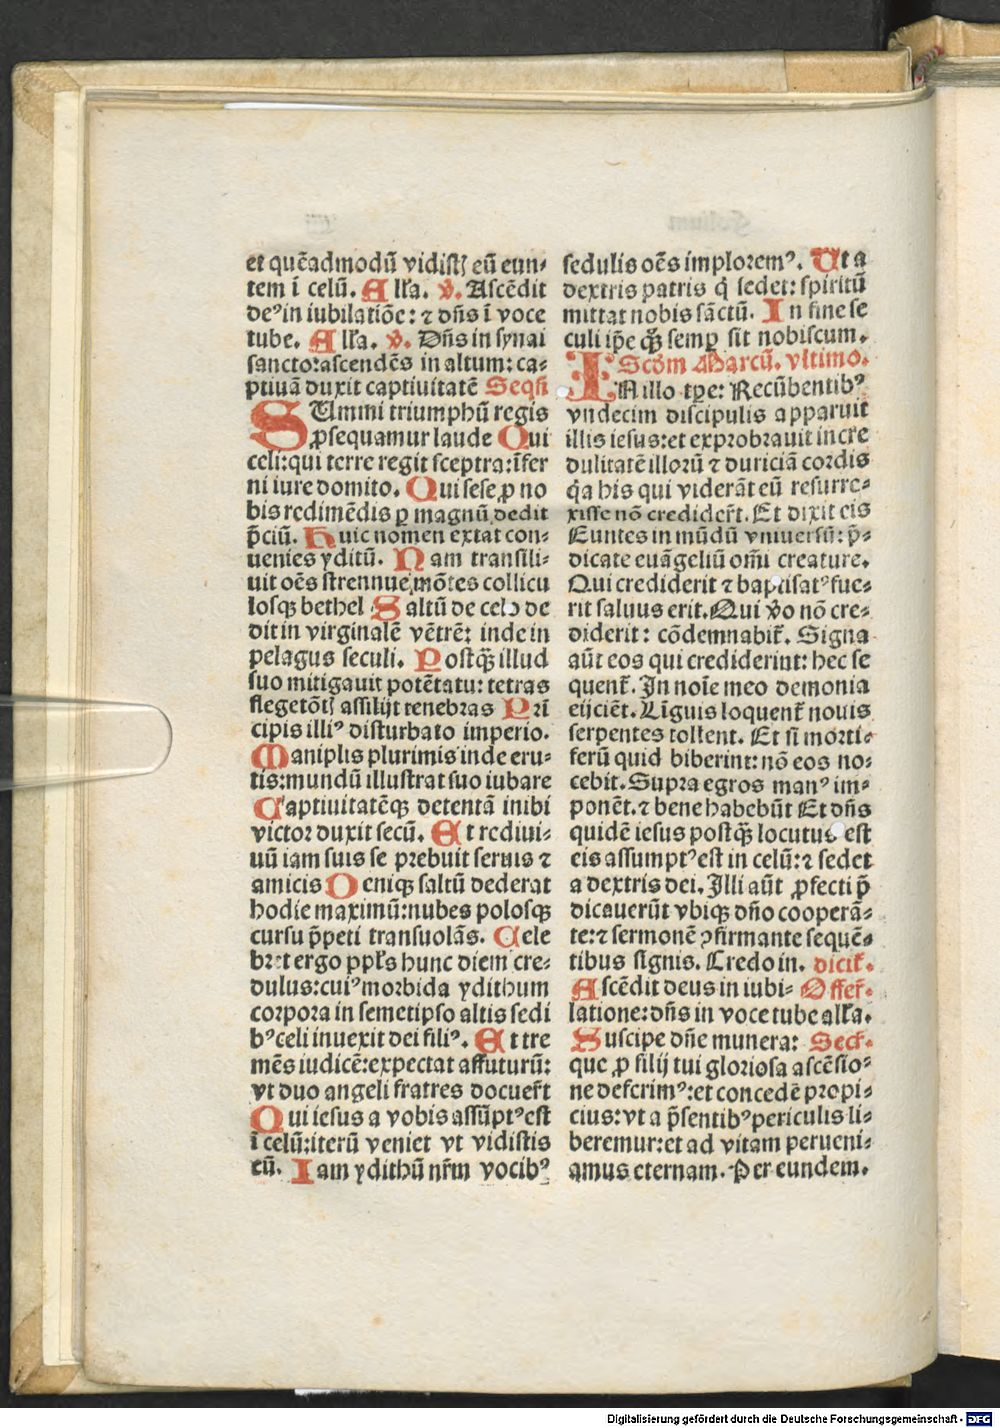 et quēadmodū vidistꝭ eū eun⸗
tem ī celū. Allꝛa. ℣. Ascēdit
deꝰ in iubilatiōe: ⁊ dn̄s ī voce
tube. Allꝛa. ℣. Dn̄s in synai
sancto:ascendēs in altum: ca⸗
ptiuā duxit captiuitatē Seqn̄
SUmmi triumphū regis
ꝓsequamur laude Qui
celi:qui terre regit sceptra:īfer
ni iure domito. Qui sese ꝓ no
bis redimēdis ꝑ magnū dedit
p̄ciū. Huic nomen extat con⸗
uenies yditū. Nam transili⸗
uit oēs strennue mōtes collicu
losqꝫ bethel Saltū de celo de
dit in virginalē vētrē: inde in
pelagus seculi. Postqꝫ̄ illud
suo mitigauit potētatu: tetras
flegetōtꝭ assilijt tenebras Prī
cipis illiꝰ disturbato imperio.
Maniplis plurimis inde eru⸗
tis:mundū illustrat suo iubare
Captiuitatēqꝫ detentā inibi
victor duxit secū. Et rediui⸗
uū iam suis se prebuit seruis ⁊
amicis Deniqꝫ saltū dederat
hodie maximū:nubes polosqꝫ
cursu p̄peti transuolās. Cele
bret ergo ppl̄s hunc diem cre⸗
dulus:cuiꝰ morbida ydithum
corpora in semetipso altis sedi
bꝰ celi inuexit dei filiꝰ. Et tre
mēs iudicē:expectat affuturū:
vt duo angeli fratres docuer̄t
Qui iesus a vobis assūptꝰ est
ī celū:iterū veniet vt vidistis
eū. Iam ydithū nr̄m vocibꝰ
sedulis oēs imploremꝰ. Ut a
dextris patris q̇ sedet: spiritū
mittat nobis sāctū. In fine se
culi ip̄e qꝫ̄ semꝑ sit nobiscum.
Scd̄m Marcū. vltimo.
IN illo tꝑe: Recūbentibꝰ
vndecim discipulis apparuit
illis iesus:et exprobrauit incre
dulitatē illorū ⁊ duriciā cordis
q̇a his qui viderāt eū resurre⸗
xisse nō credider̄t. Et dixit eis
Euntes in mūdū vniuersū: p̄⸗
dicate euāgeliū om̄i creature.
Qui crediderit ⁊ baptisatꝰ fue⸗
rit saluus erit. Qui v̄o nō cre⸗
diderit: cōdemnabit̄. Signa
aūt eos qui crediderint: hec se
quent̄. In noīe meo demonia
eijciēt. Līguis loquent̄ nouis
serpentes tollent. Et si morti⸗
ferū quid biberint: nō eos no⸗
cebit. Supra egros manꝰ im⸗
ponēt. ⁊ bene habebūt Et dn̄s
quidē iesus postqꝫ̄ locutus est
eis assumptꝰ est in celū:⁊ sedet
a dextris dei. Illi aūt ꝓfecti p̄
dicauerūt vbiqꝫ dn̄o cooperā⸗
te:⁊ sermonē ꝯfirmante sequē⸗
tibus signis. Credo in. dicit̄.
Ascēdit deus in iubi⸗ Offer̄.
latione: dn̄s in voce tube allꝛa.
Suscipe dn̄e munera: Secr̄.
que ꝓ filij tui gloriosa ascēsio⸗
ne defcrimꝰ:et concedē propi⸗
cius:vt a p̄sentibꝰ periculis li⸗
beremur:et ad vitam perueni⸗
amus eternam. Per eundem.
Digitalisierung gefördert durch die Deutsche Forschungsgemeinschaft - DFG